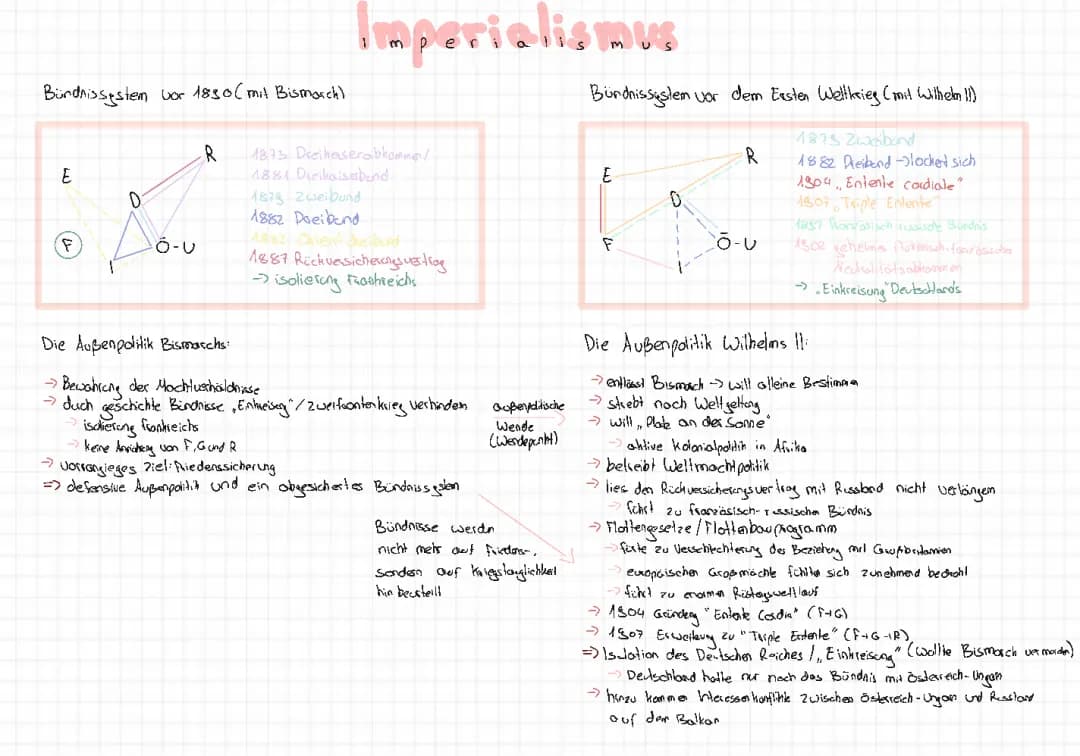 Imperialismus
Imperialismus
Bündnissystem vor 1890 (mit Bismarck)
E
R
D
F
Ö-U
I
1873 Dreikaiserabkommen/
1881 Dreikaiserbund
1879 Zweibund
1882 Dreibund
1887 Rückversicherungsvertrag
→ isolierung Frankreichs
Bündnissystem vor dem Ersten Weltkrieg (mit Wilhelm II)
E
R
D
F
Ö-U
I
1879 Zweibund
1882 Dreibund → lockert sich
1904 „Entente cordiale"
1907 „Triple Entente"
französisch russische Bündnis
1902 geheimes italienisch-französisches
Neutralitätsabkommen
→ „Einkreisung" Deutschlands
Die Außenpolitik Bismarcks:
→ Bewahrung der Machtverhältnisse
→ duch geschichte Bündnisse „Einkreisung"/Zweifrontenkrieg verhindern
→ isolierung Frankreichs
→ keine von F, G und R
→ vorrangieges Ziel: Friedenssicherung
=> defensive Außenpolitik und ein abgesichertes Bündnissystem
außenpolitische
Wende
(Wendepunkt)
Bündnisse werdn
nicht mehr auf Friedens-,
sondern auf Kriegstauglichkeit
hin beurteilt
Die Außenpolitik Wilhelms II:
→ entlässt Bismarck → will alleine Bestimmen
→ strebt nach Weltgeltung
→ will „Platz an der Sonne"
→ aktive Kolonialpolitik in Afrika
→ betreibt Weltmachtpolitik
→ lies den Rückversicherungsvertrag mit Russland nicht verlängern
→ führt zu französisch-russischen Bündnis
→ Flottengesetze/Flottenbauprogramm
→ fürte zu Verschlechterung der Beziehung mit Großbritannien
→ europäischen Grosmächte fühlte sich zunehmend bedroht
→ führt zu enormen Rüstungswettlauf
→ 1904 Gründung "Entente Cordia" (F+G)
→ 1907 Erweiterung zu "Triple Entente" (F+G+R)
=> Isolation des Deutschen Reiches /„Einkreisung" (wollte Bismarck vermeiden)
→ Deutschland hatte nur noch das Bündnis mit Österreich-Ungarn
→ hinzu kommen Interessenkonflikte zwischen Österreich-Ungarn und Russland
auf dem Balkan